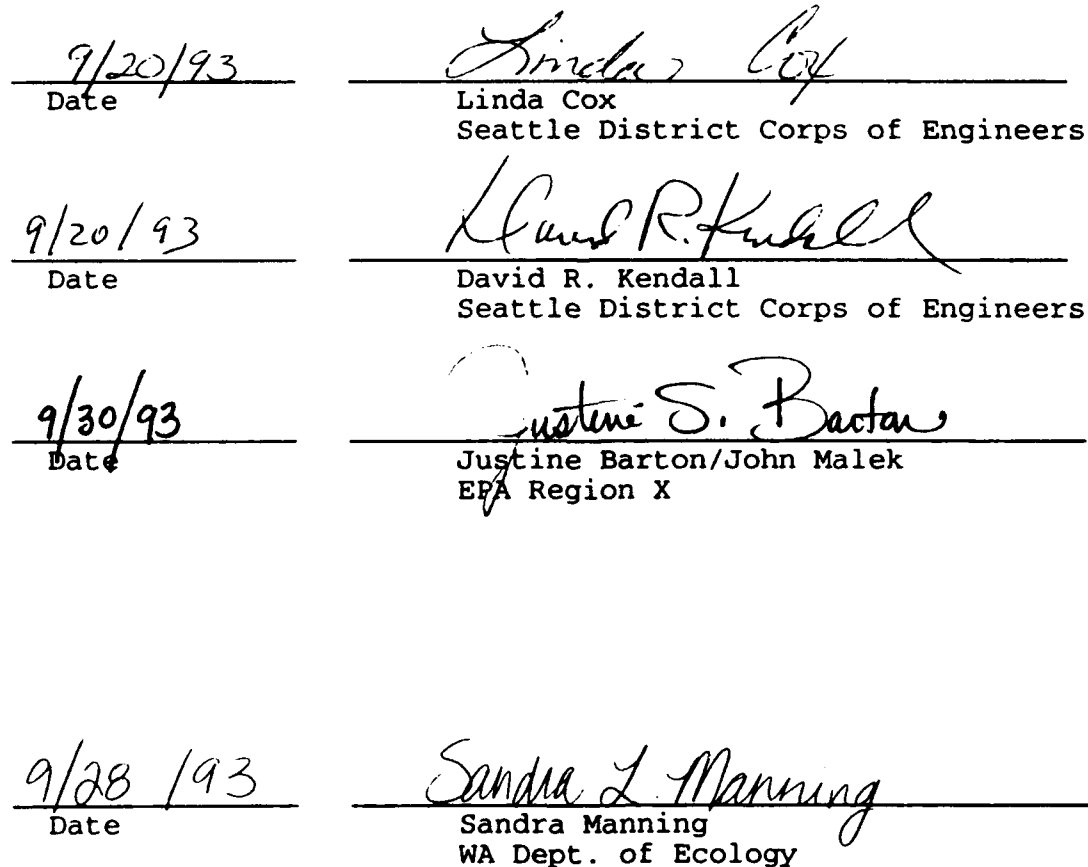 9/20/93 Linda Cox
Date Linda Cox
Seattle District Corps of Engineers
9/20/93 David R. Kendall
Date David R. Kendall
Seattle District Corps of Engineers
9/30/93 Justine S. Barton
Date Justine Barton/John Malek
EPA Region X
9/28/93 Sandra L Manning
Date Sandra Manning
WA Dept. of Ecology